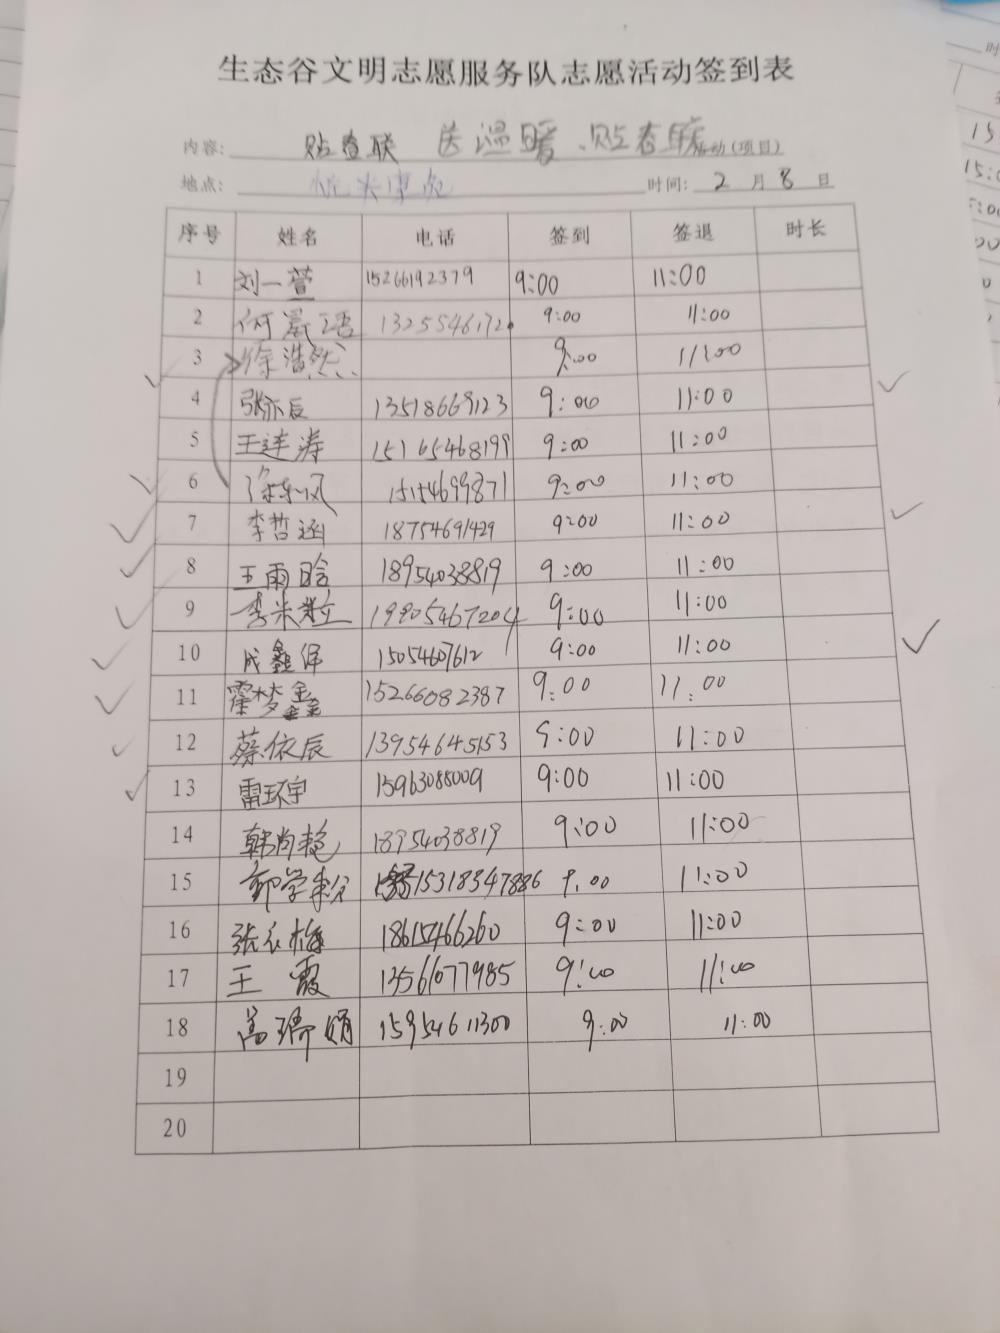 生态谷文明志愿服务队志愿活动签到表
内容: 贴春联 送温暖、贴春联 活动(项目)
地点: 时间: 2 月 8 日
序号 姓名 电话 签到 签退 时长
1 刘一萱 15266192379 9:00 11:00
2 何 语 1325546172 9:00 11:00
3 徐浩然 9:00 11:00
4 张亦辰 13518669123 9:00 11:00
5 王连涛 15165468199 9:00 11:00
6 徐东风 15154699871 9:00 11:00
7 李哲涵 18754691429 9:00 11:00
8 王雨晗 18954038819 9:00 11:00
9 李米粒 19905467204 9:00 11:00
10 成鑫伊 15054607612 9:00 11:00
11 霍梦鑫 15266082387 9:00 11:00
12 蔡依辰 13954645153 9:00 11:00
13 雷环宇 15963088009 9:00 11:00
14 韩尚 18954038819 9:00 11:00
15 郭学粉 15318347886 9:00 11:00
16 张 梅 18615466260 9:00 11:00
17 王霞 13561077985 9:00 11:00
18 高 娟 15954611300 9:00 11:00
19
20
15:0